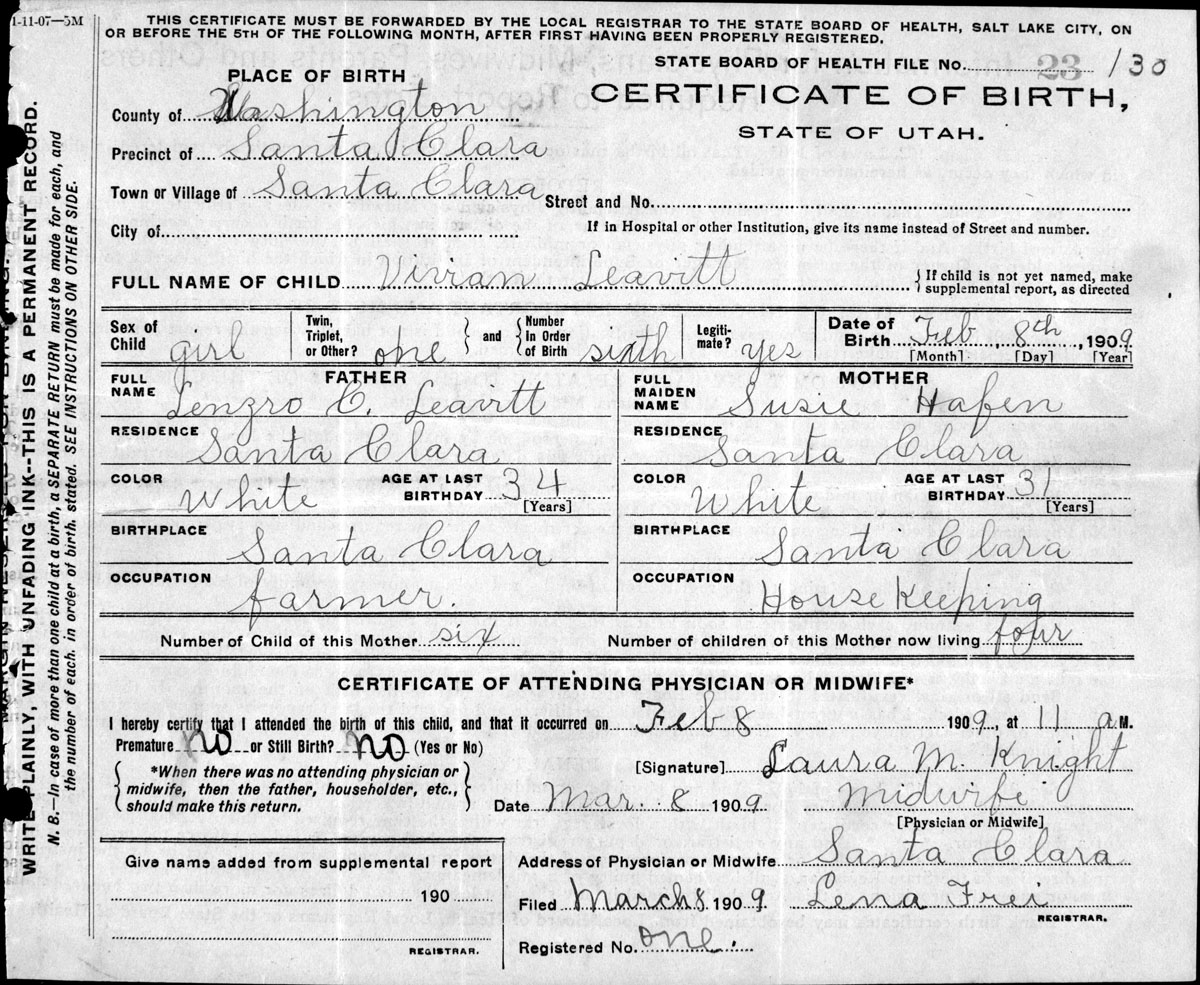 1-11-07—5M
THIS CERTIFICATE MUST BE FORWARDED BY THE LOCAL REGISTRAR TO THE STATE BOARD OF HEALTH, SALT LAKE CITY, ON
OR BEFORE THE 5TH OF THE FOLLOWING MONTH, AFTER FIRST HAVING BEEN PROPERLY REGISTERED.
STATE BOARD OF HEALTH FILE NO. 23 /30
PLACE OF BIRTH
CERTIFICATE OF BIRTH,
STATE OF UTAH.
County of Washington
Precinct of Santa Clara
Town or Village of Santa Clara Street and No.
City of If in Hospital or other Institution, give its name instead of Street and number.
FULL NAME OF CHILD Vivian Leavitt { If child is not yet named, make
supplemental report, as directed
Sex of Child girl Twin, Triplet, or Other? one } and { Number In Order of Birth sixth Legiti-mate? yes Date of Birth Feb, 8th, 1909
[Month] [Day] [Year]
FULL NAME FATHER Lenzro C. Leavitt FULL MAIDEN NAME MOTHER Susie Hafen
RESIDENCE Santa Clara RESIDENCE Santa Clara
COLOR White AGE AT LAST BIRTHDAY 34 [Years] COLOR White AGE AT LAST BIRTHDAY 31 [Years]
BIRTHPLACE Santa Clara BIRTHPLACE Santa Clara
OCCUPATION farmer. OCCUPATION House Keeping
Number of Child of this Mother six Number of children of this Mother now living four
CERTIFICATE OF ATTENDING PHYSICIAN OR MIDWIFE*
I hereby certify that I attended the birth of this child, and that it occurred on Feb 8 1909, at 11 a M.
Premature no or Still Birth? no (Yes or No)
[Signature] Laura M. Knight
{ *When there was no attending physician or
midwife, then the father, householder, etc.,
should make this return. }
Date Mar. 8 1909 Midwife
[Physician or Midwife]
Give name added from supplemental report
190
REGISTRAR.
Address of Physician or Midwife Santa Clara
Filed March 8 1909. Lena Frei
REGISTRAR.
Registered No. one.
WRITE PLAINLY, WITH UNFADING INK--THIS IS A PERMANENT RECORD.
N. B.—In case of more than one child at a birth, a SEPARATE RETURN must be made for each, and
the number of each, in order of birth, stated. SEE INSTRUCTIONS ON OTHER SIDE.